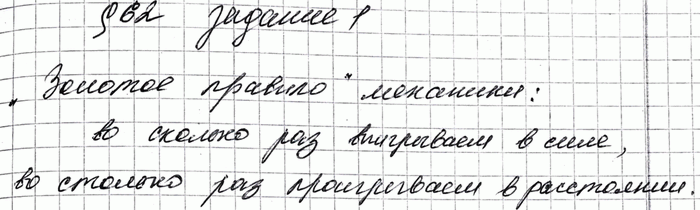 §62 задание 1
„Золотое правило" механики:
во сколько раз выигрываем в силе,
во столько раз проигрываем в расстоянии.